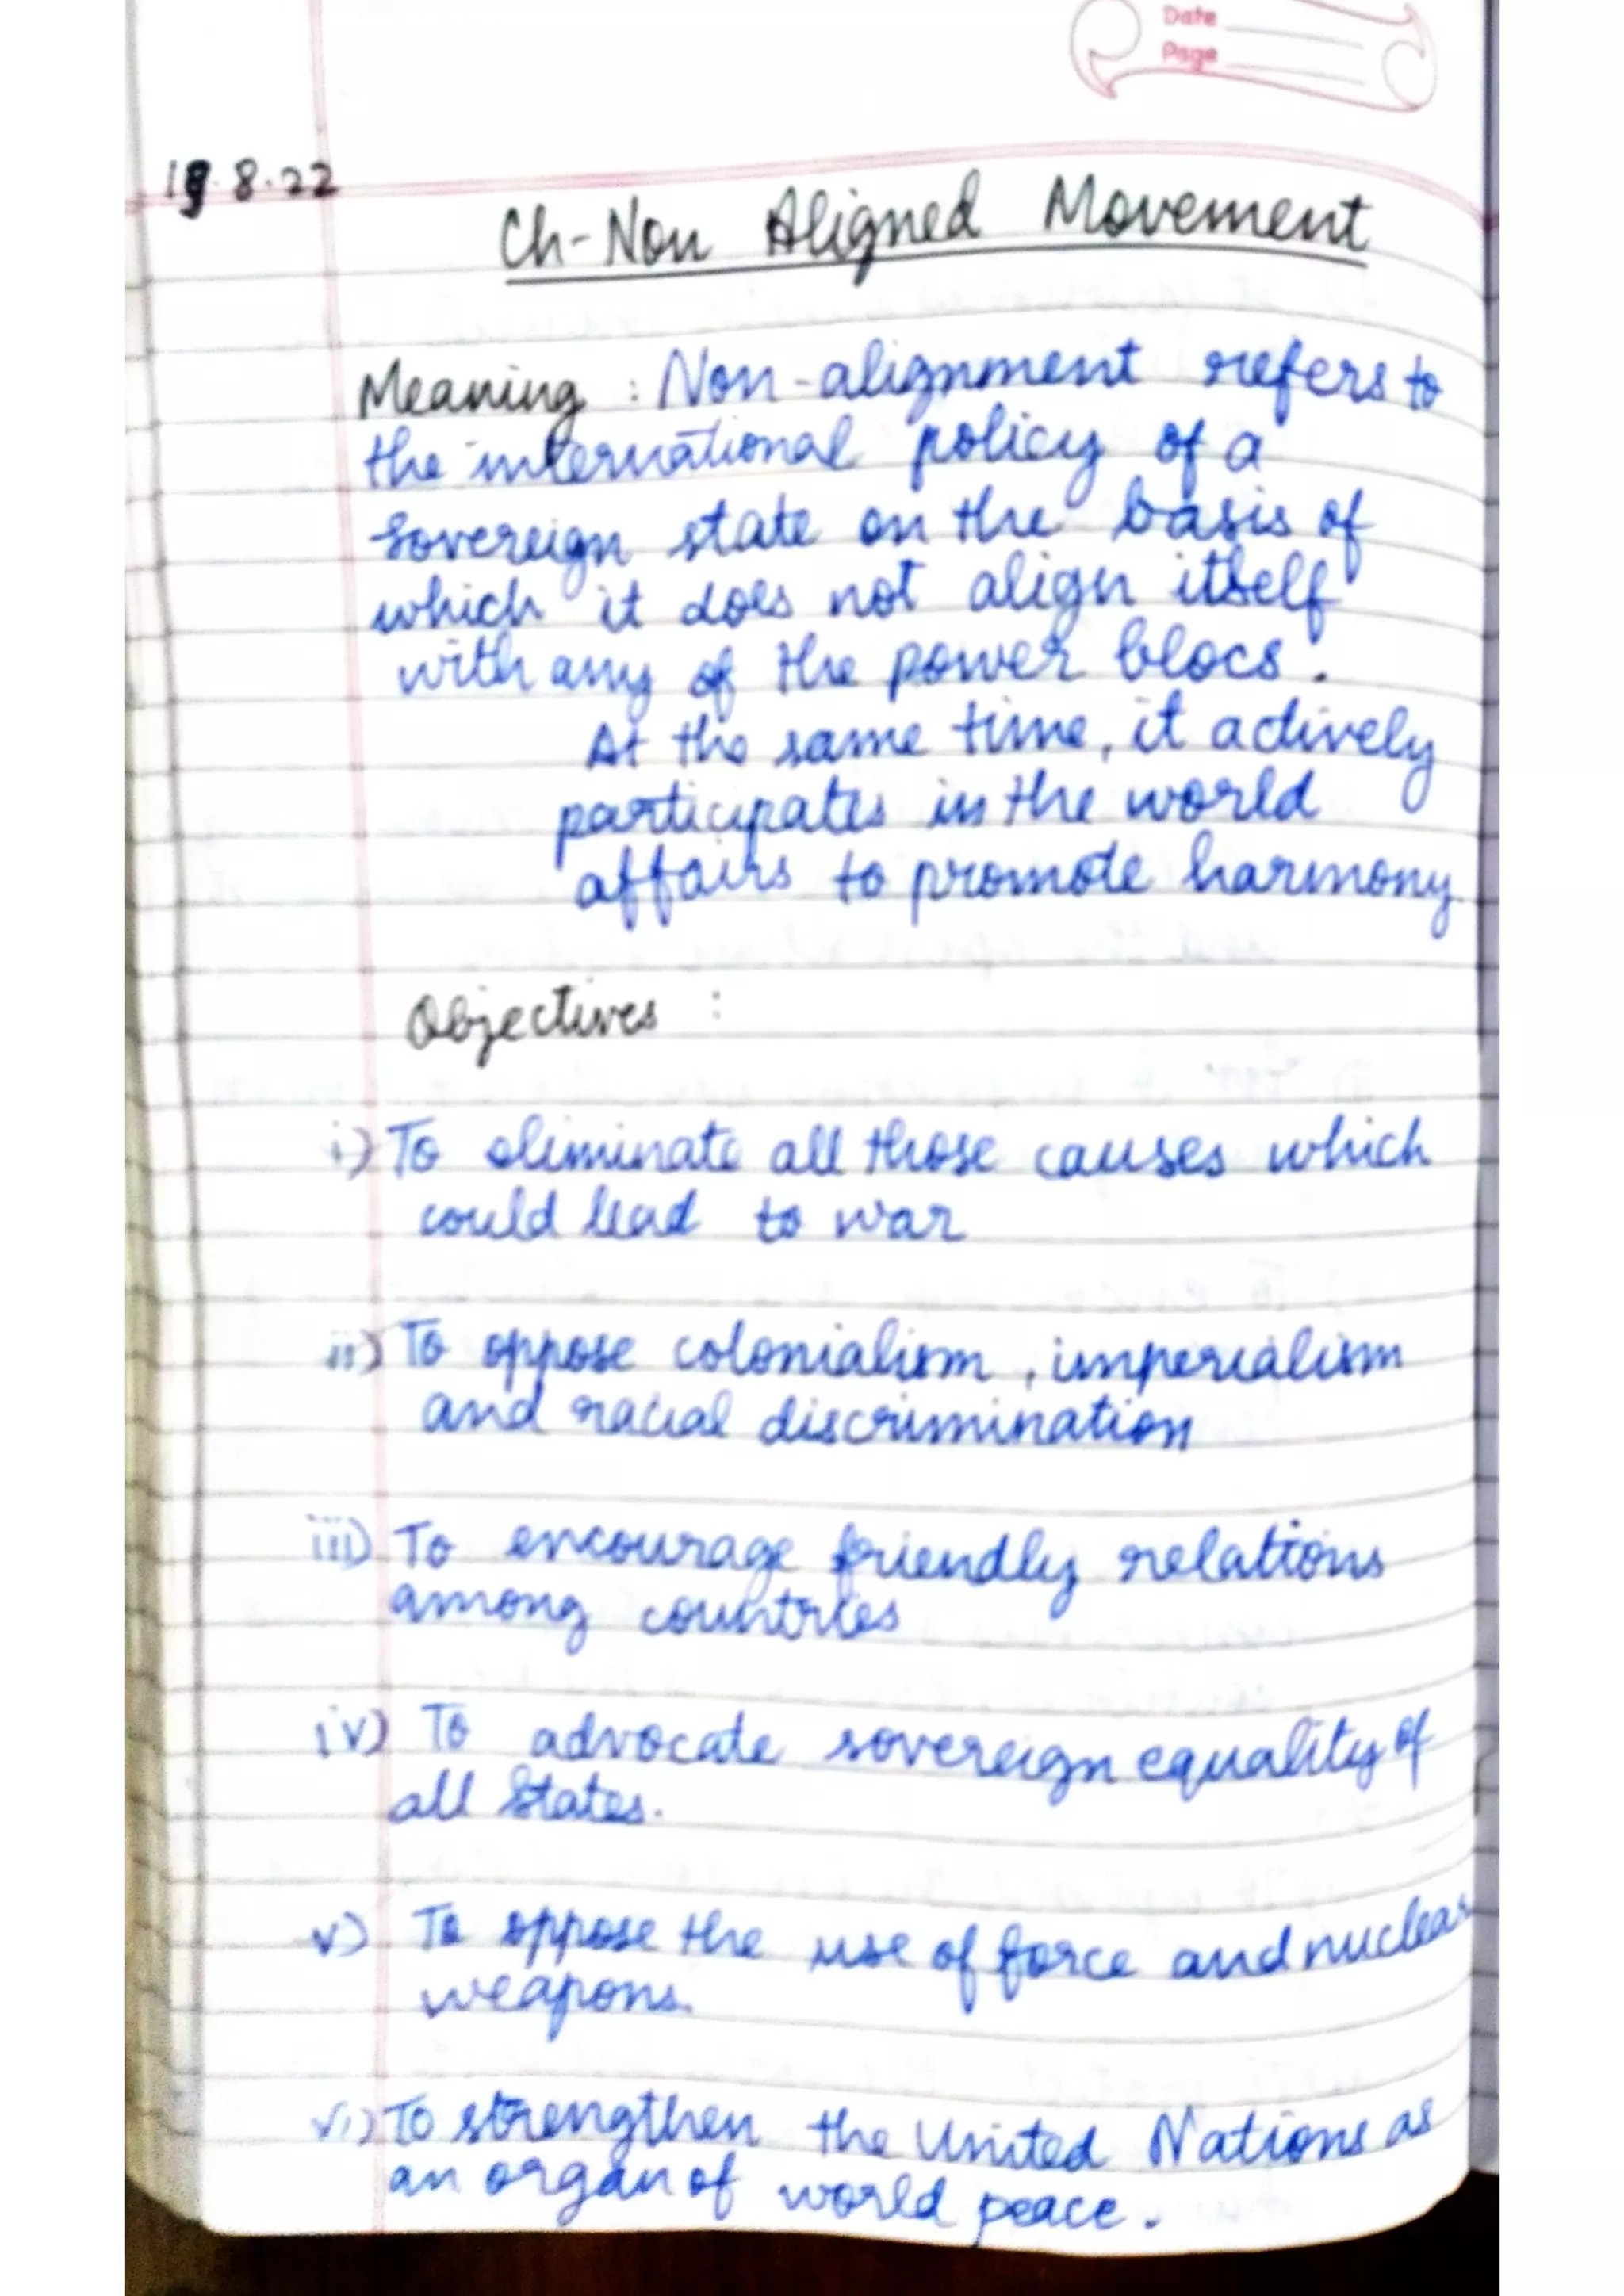 Date
Page
19.8.22
Ch-Non Aligned Movement
Meaning : Non-alignment refers to
the international policy of a
sovereign state on the basis of
which it does not align itself
with any of the power blocs.
At the same time, it actively
participates in the world
affairs to promote harmony.
Objectives :
i) To eliminate all those causes which
could lead to war
ii) To oppose colonialism, imperialism
and racial discrimination
iii) To encourage friendly relations
among countries
iv) To advocate sovereign equality of
all States.
v) To oppose the use of force and nuclear
weapons.
vi) To strengthen the United Nations as
an organ of world peace.